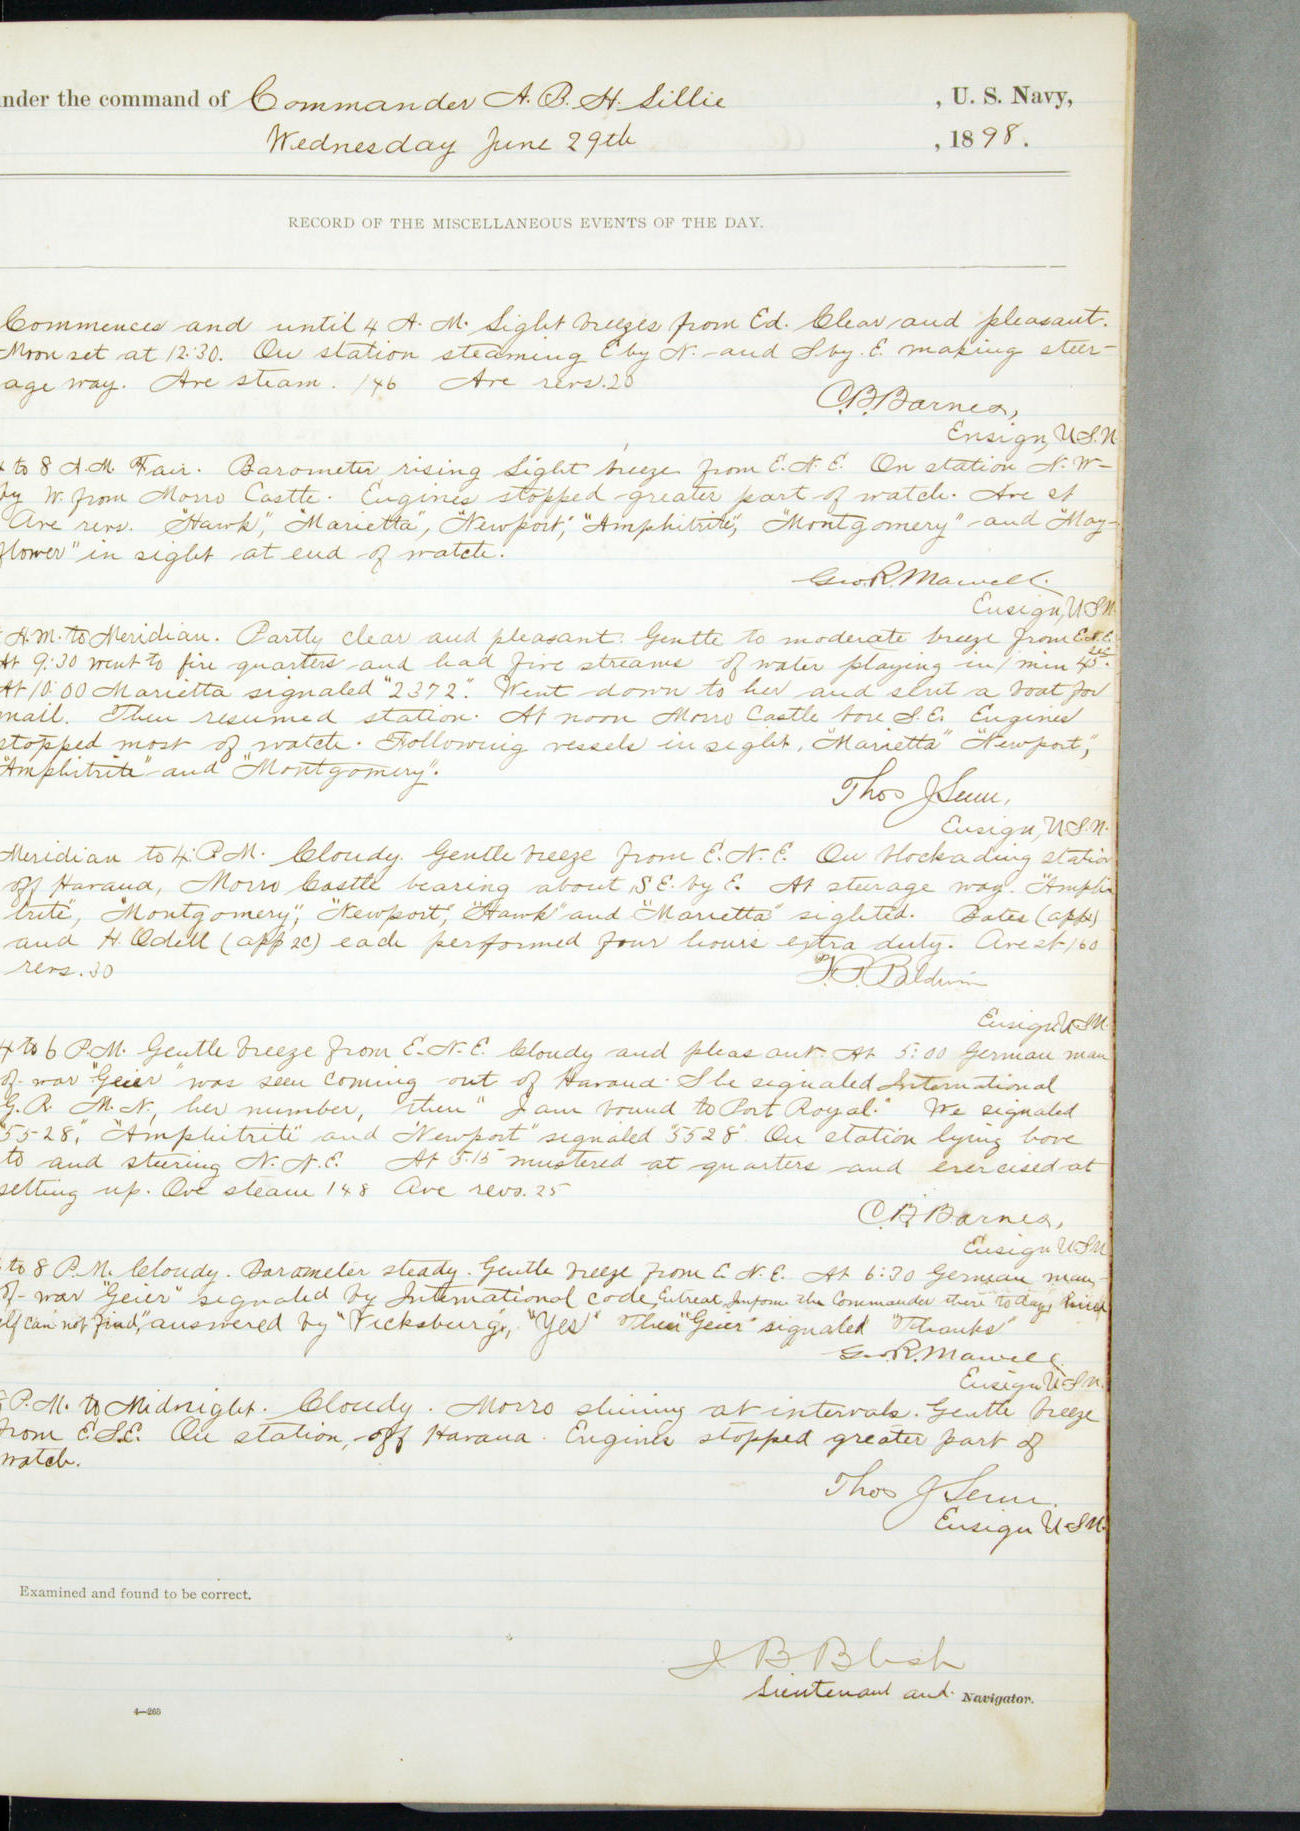 under the command of Commander A. B. H. Lillie , U. S. Navy,
Wednesday June 29th , 1898.
RECORD OF THE MISCELLANEOUS EVENTS OF THE DAY.
Commences and until 4 A. M. Light breezes from Ed. Clear and pleasant.
Moon set at 12:30. On station steaming E by N. and S by. E. making steer-
age way. Ave steam. 146 Ave revs. 20
C. B. Barnes,
Ensign, U.S.N.
4 to 8 A.M. Fair. Barometer rising Light breeze from E.N.E. On station N.W-
by W. from Morro Castle. Engines stopped greater part of watch. Ave st
Ave revs. "Hawk", "Marietta", "Newport", "Amphitrite", "Montgomery" and "May-
flower" in sight at end of watch.
Geo. R. Marvell.
Ensign, U.S.N.
A.M. to Meridian. Partly clear and pleasant. Gentle to moderate breeze from E.N.E.
At 9:30 went to fire quarters and had five streams of water playing in 1 min 45 sec.
At 10:00 Marietta signaled "2372". Went down to her and sent a boat for
mail. Then resumed station. At noon Morro Castle bore S.E. Engines
stopped most of watch. Following vessels in sight, "Marietta" "Newport",
"Amphitrite" and "Montgomery".
Thos J Senn,
Ensign, U.S.N.
Meridian to 4. P.M. Cloudy. Gentle breeze from E.N.E. On blockading station
off Havana, Morro Castle bearing about S.E. by E. At steerage way. "Amphi-
trite", "Montgomery", "Newport", "Hawk" and "Marietta" sighted. Bates (app)
and H. Odell (app 2c) each performed four hours extra duty. Ave st. 160
revs. 30
F. P. Baldwin
Ensign U.S.N.
4 to 6 P.M. Gentle breeze from E.N.E. Cloudy and pleasant. At 5:00 German man
of-war "Geier" was seen coming out of Havana. She signaled International
G. R. M. N., her number, then "I am bound to Port Royal." We signaled
"5528", "Amphitrite" and "Newport" signaled "5528". On station lying hove
to and steering N.N.E. At 5.15 mustered at quarters and exercised at
setting up. Ave steam 148 Ave revs. 25
C. B. Barnes,
Ensign U.S.N.
to 8 P.M. Cloudy. Barometer steady. Gentle breeze from E.N.E. At 6:30 German man-
of-war "Geier" signaled by International code, Entreat, Inform the Commander there to day,
if can not find", answered by "Vicksburg", "Yes" Then "Geier" signaled "Thanks"
Geo. R. Marvell.
Ensign U.S.N.
8 P.M. to Midnight. Cloudy. Morro shining at intervals. Gentle breeze
from E.S.E. On station, off Havana. Engines stopped greater part of
watch.
Thos J Senn.
Ensign U.S.N.
Examined and found to be correct.
J B Blish
Lieutenant and Navigator.
4—265